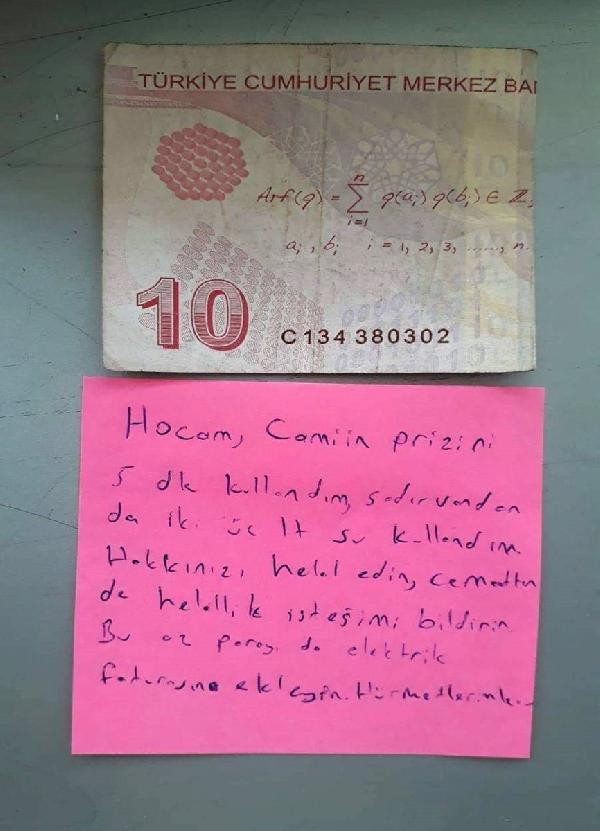 TÜRKİYE CUMHURİYET MERKEZ BA
Arf(q) = n∑i=1 q(ai) q(bi) ∈ ℤ
ai, bi i = 1, 2, 3, ......, n.
10
C134 380302
Hocam, Camiin prizini
5 dk kullandım, şadırvandan
da iki üç lt su kullandım.
Hakkınızı helal edin, cemaatten
de helallik isteğimi bildirin
Bu az parayı da elektrik
faturasına ekleyin. Hürmetlerimle